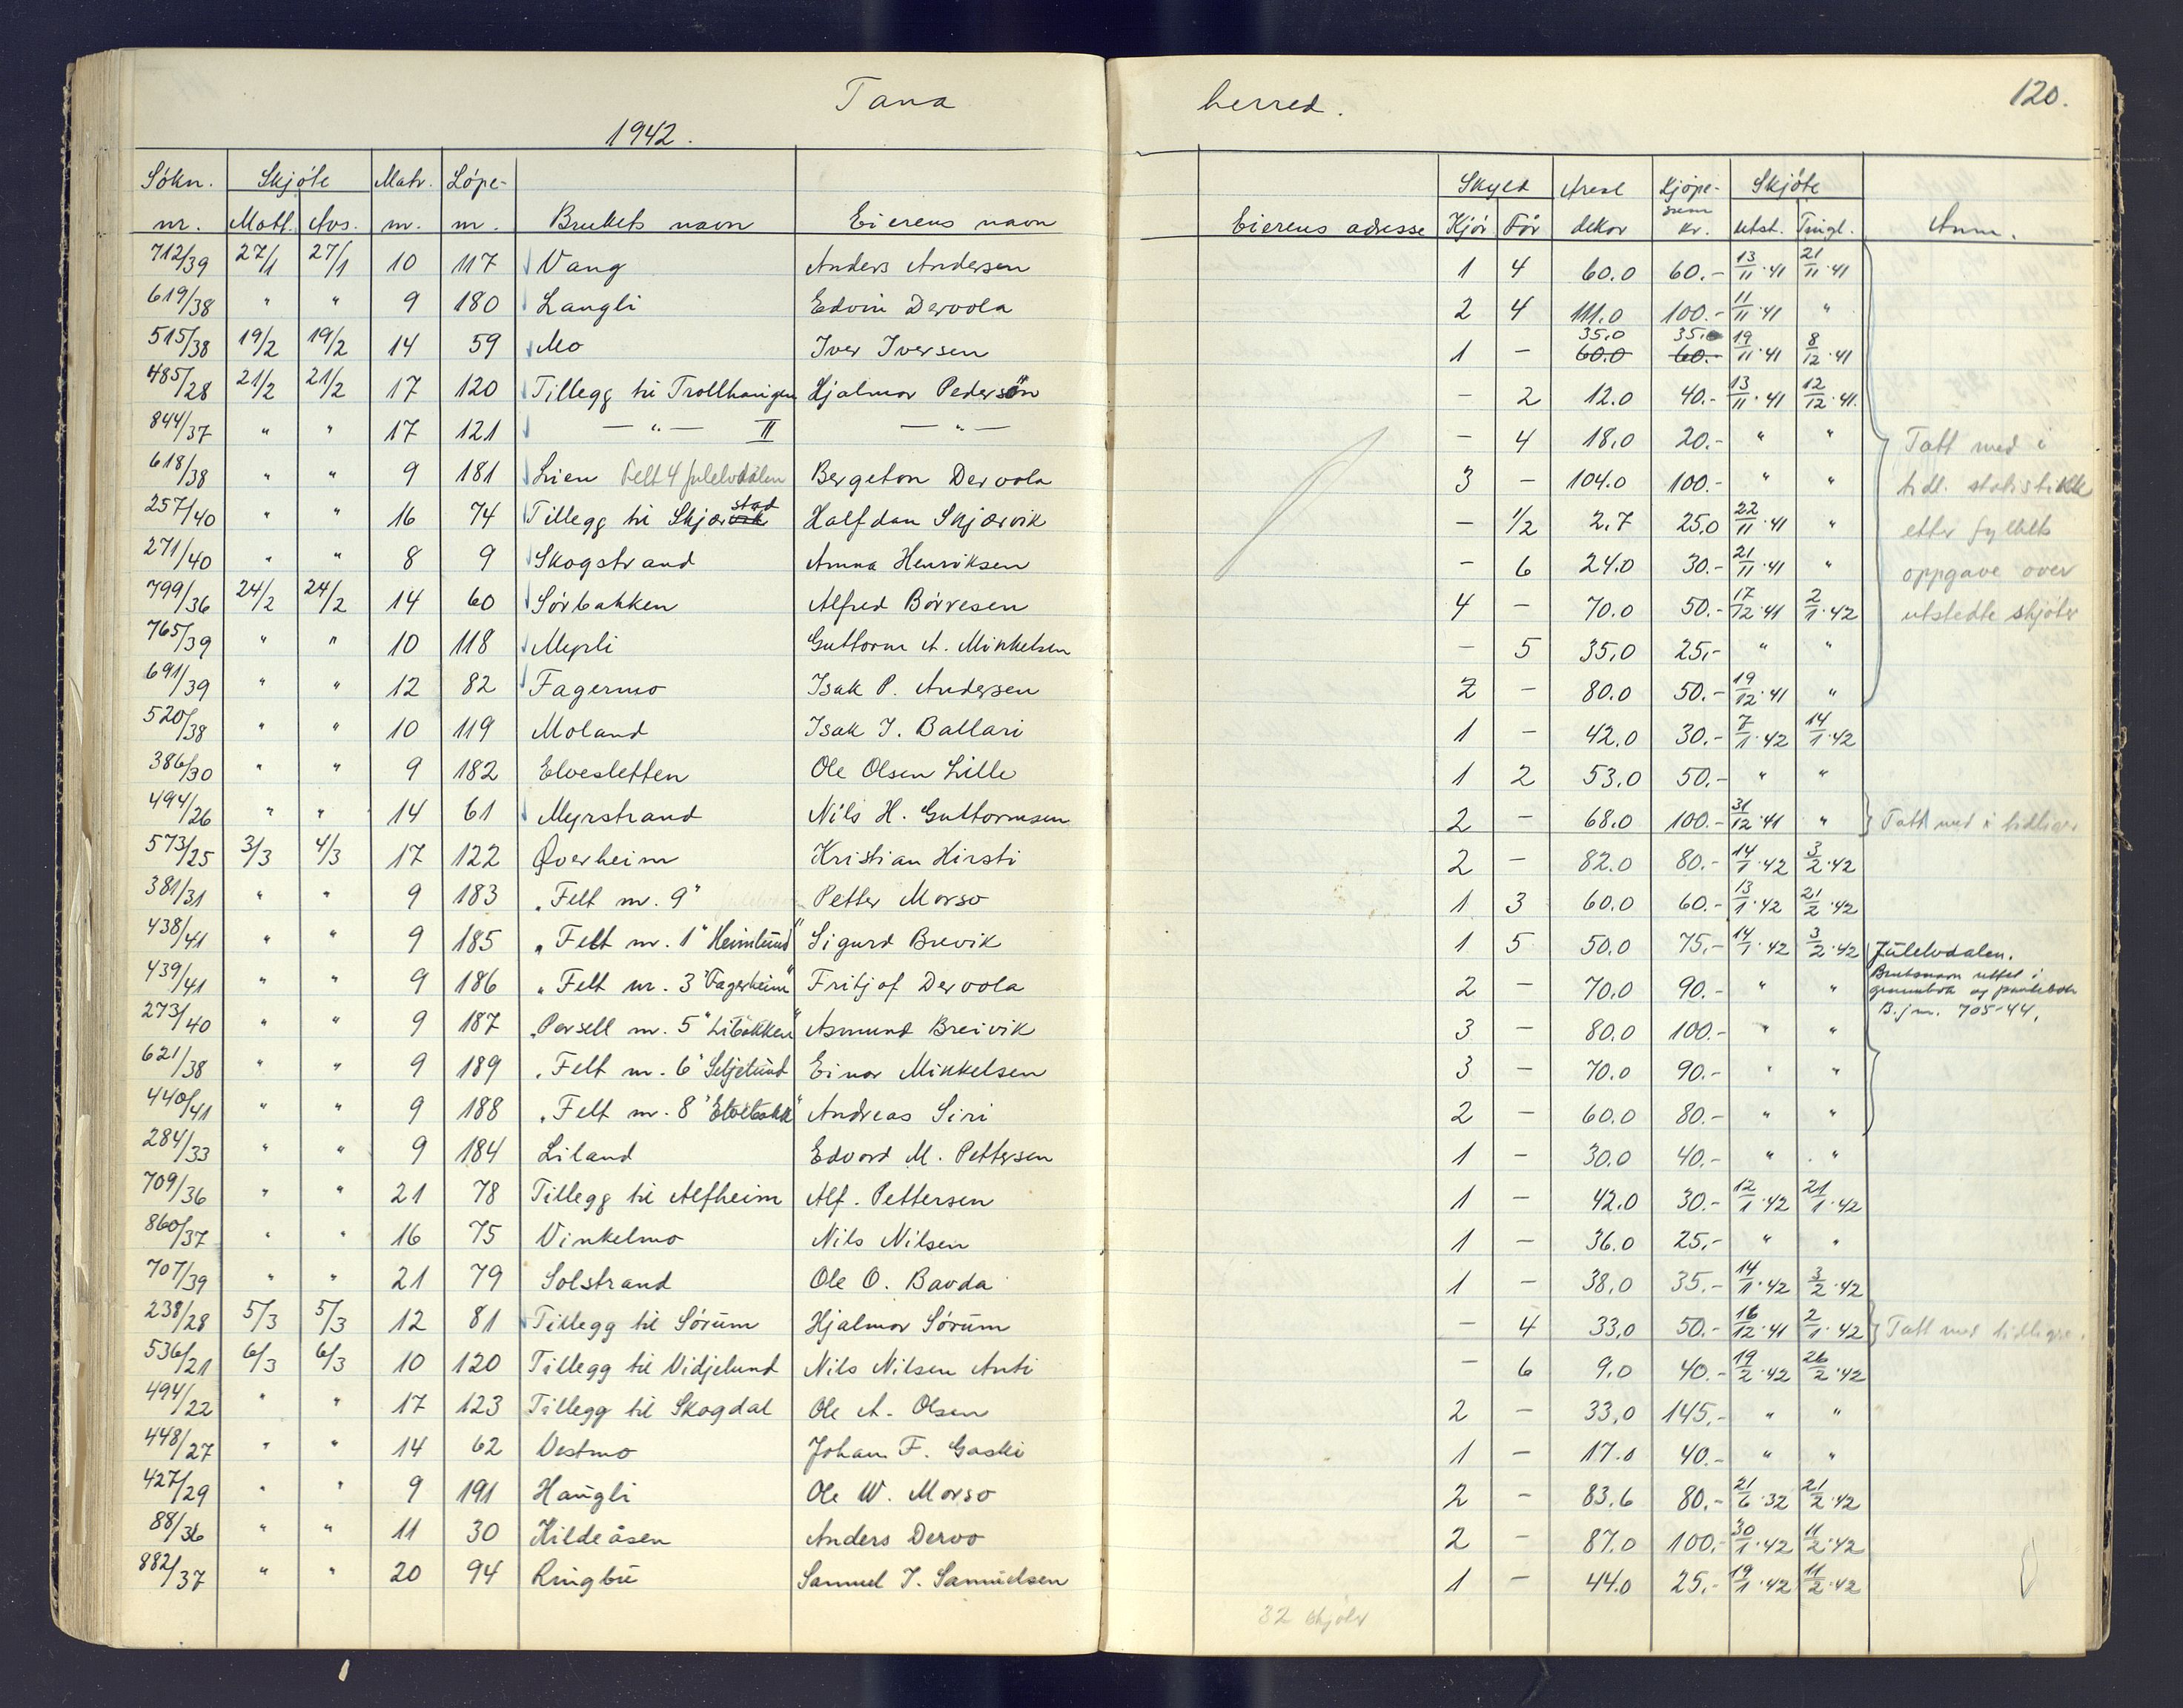 Tana herred. 120.
1942.
Sökn. nr. | Skjöte Mott. | Avs. | Matr. nr. | Löpe- nr. | Brukets navn | Eierens navn | Eierens adresse | Skyld Kjör | För | Areal dekar | Kjöpe- sum kr. | Skjöte utst. | Tingl. | Anm.
712/39 27/1 27/1 10 117 Vang Anders Andersen 1 4 60.0 60.- 13/11·41 21/11·41
619/38 " " 9 180 Langli Edvin Dervola 2 4 111.0 100.- 11/11·41 "
515/38 19/2 19/2 14 59 Mo Iver Iversen 1 - 35.0 60.0 35.0 60.- 19/11·41 8/12·41
485/28 21/2 21/2 17 120 Tillegg til Trollhaugen Hjalmar Pedersön - 2 12.0 40.- 13/11·41 12/12·41.
844/37 " " 17 121 — " — II — " — - 4 18.0 20.- " " Tatt med i
618/38 " " 9 181 Lien Felt 4 Julelvdalen Bergeton Dervola 3 - 104.0 100.- " " tidl. statistikk
257/40 " " 16 74 Tillegg til Skjærvik stad Halfdan Skjærvik - 1/2 2.7 25.0 22/11·41 " etter fylkets
271/40 " " 8 9 Skogstrand Anna Henriksen - 6 24.0 30.- 21/11·41 " oppgave over
799/36 24/2 24/2 14 60 Sörbakken Alfred Börresen 4 - 70.0 50.- 17/12·41 2/1·42 utstedte skjöter
765/39 " " 10 118 Myrli Guttorm A. Mikkelsen - 5 35.0 25.- " "
691/39 " " 12 82 Fagermo Isak P. Andersen 2 - 80.0 50.- 19/12·41 "
520/38 " " 10 119 Moland Isak J. Ballari 1 - 42.0 30.- 7/1·42 14/1·42
386/30 " " 9 182 Elvesletten Ole Olsen Lille 1 2 53.0 50.- " "
494/26 " " 14 61 Myrstrand Nils H. Guttormsen 2 - 68.0 100.- 31/12·41 " Tatt med i tidligere
573/25 3/3 4/3 17 122 Överheim Kristian Hirsti 2 - 82.0 80.- 14/1·42 3/2·42
381/31 " " 9 183 "Felt nr. 9" Petter Morso 1 3 60.0 60.- 13/1·42 21/2·42
438/41 " " 9 185 "Felt nr. 1" "Heimlund" Sigurd Brevik 1 5 50.0 75.- 14/1·42 3/2·42 Julelvdalen.
439/41 " " 9 186 "Felt nr. 3 "Fagerheim" Fritjof Dervola 2 - 70.0 90.- " " Bruksnavn rettet i grunnbok og pantebok
273/40 " " 9 187 "Parsell nr. 5 "Libakken" Asmund Breivik 3 - 80.0 100.- " " B.jnr. 705-44.
621/38 " " 9 189 "Felt nr. 6 "Seljelund Einar Mikkelsen 3 - 70.0 90.- " "
440/41 " " 9 188 "Felt nr. 8 "Elvebakk" Andreas Siri 2 - 60.0 80.- " "
284/33 " " 9 184 Liland Edvard M. Pettersen 1 - 30.0 40.- " "
709/36 " " 21 78 Tillegg til Alfheim Alf. Pettersen 1 - 42.0 30.- 12/1·42 21/1·42
860/37 " " 16 75 Vinkelmo Nils Nilsen 1 - 36.0 25.- " "
707/39 " " 21 79 Solstrand Ole O. Bavda 1 - 38.0 35.- 14/1·42 3/2·42
238/28 5/3 5/3 12 81 Tillegg til Sörum Hjalmar Sörum - 4 33.0 50.- 16/12·41 2/1·42 Tatt med tidligere.
536/21 6/3 6/3 10 120 Tillegg til Vidjelund Nils Nilsen Anti - 6 9.0 40.- 19/2·42 26/2·42
494/22 " " 17 123 Tillegg til Skogdal Ole A. Olsen 2 - 33.0 145.- " "
448/27 " " 14 62 Vestmo Johan F. Gaski 1 - 17.0 40.- " "
427/29 " " 9 191 Haugli Ole W. Morso 2 - 83.6 80.- 21/6·32 21/2·42
88/36 " " 11 30 Kildeåsen Anders Dervo 2 - 87.0 100.- 30/1·42 11/2·42
882/37 " " 20 94 Ringbu Samuel J. Samuelsen 1 - 44.0 25.- 19/1·42 11/2·42
32 skjöter